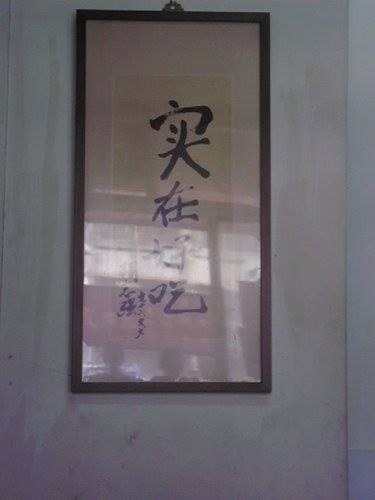 实在好吃